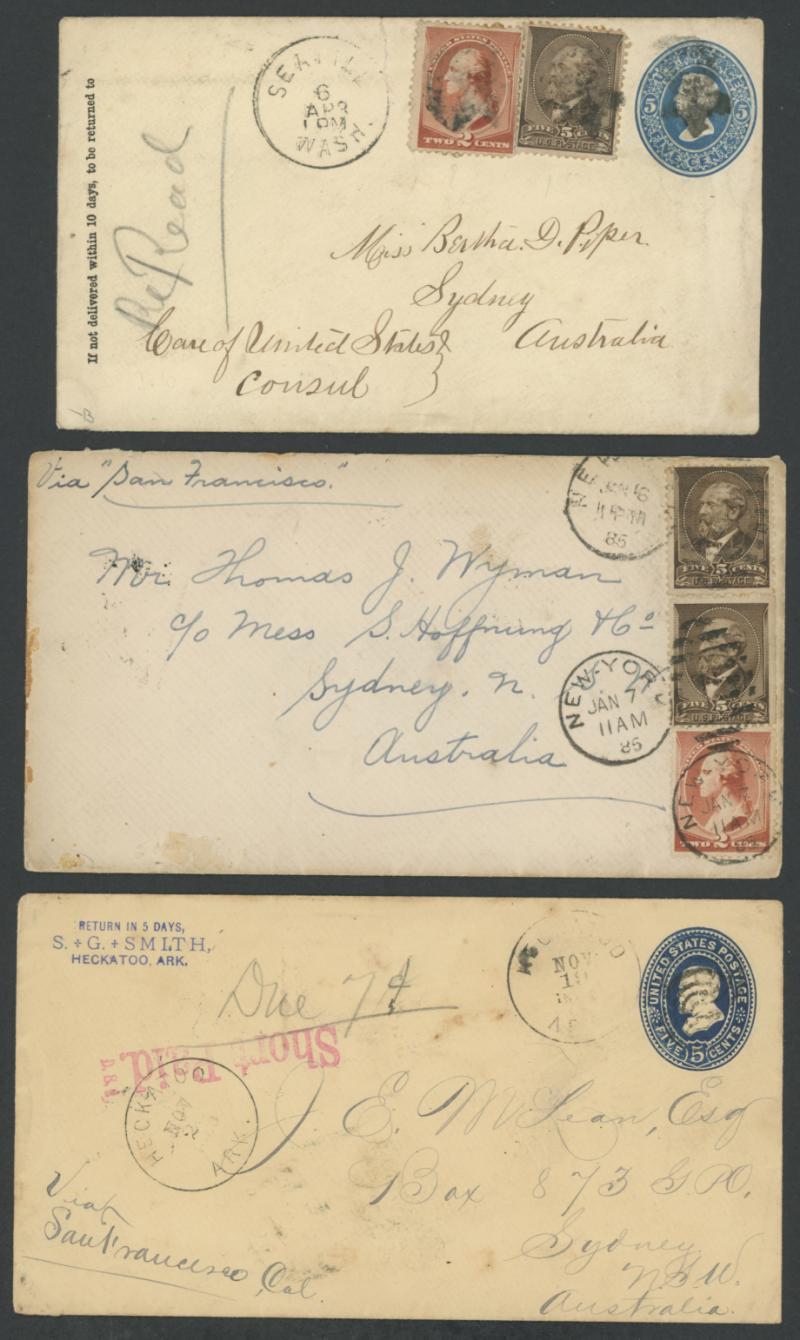 If not delivered within 10 days, to be returned to
SEATTLE
6
APR
1 PM
WASH.
TWO 2 CENTS
FIVE 5 CENTS
U.S. POSTAGE
5 5
FIVE CENTS
Miss Bertha. D. Piper
Sydney
Australia
Care of United States
Consul
Via "San Francisco."
JAN 6
85
FIVE 5 CENTS
U.S. POSTAGE
Mr. Thomas J. Wyman
c/o Mess S. Hoffnung & Co
Sydney, N.
Australia
FIVE 5 CENTS
U.S. POSTAGE
NEW-YORK
JAN 7
11 AM
85
NEW-YORK
JAN
11 AM
TWO 2 CENTS
RETURN IN 5 DAYS,
S. + G. + SMITH,
HECKATOO, ARK.
Due 7d
Short Paid.
NOV
19
UNITED STATES POSTAGE
FIVE 5 CENTS
HECKATOO
NOV
ARK.
J. E. McLean, Esq
Box 873 G.P.O.
Sydney
N.S.W.
Australia.
Via
San Francisco, Cal.